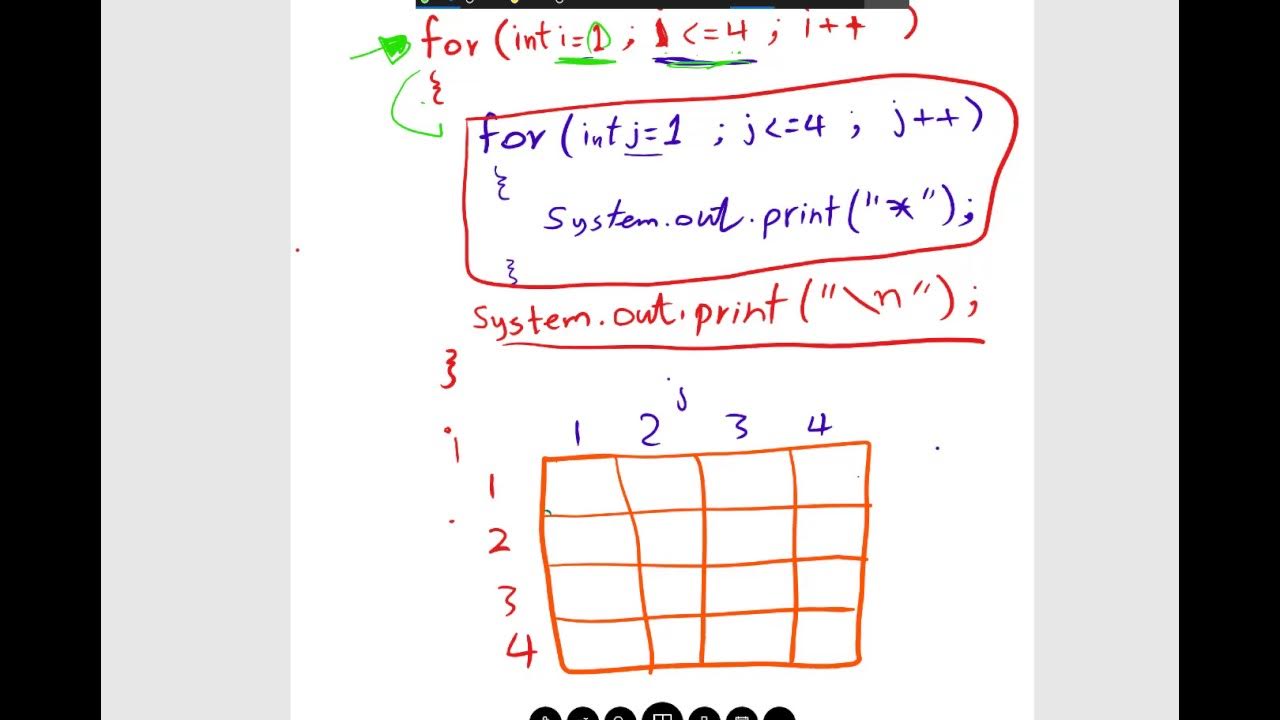 for (int i=1 ; i <=4 ; i++ )
{
for (int j=1 ; j<=4 ; j++)
{
System.out.print("*");
}
System.out.print("\n");
}
j
1 2 3 4
i
1
2
3
4